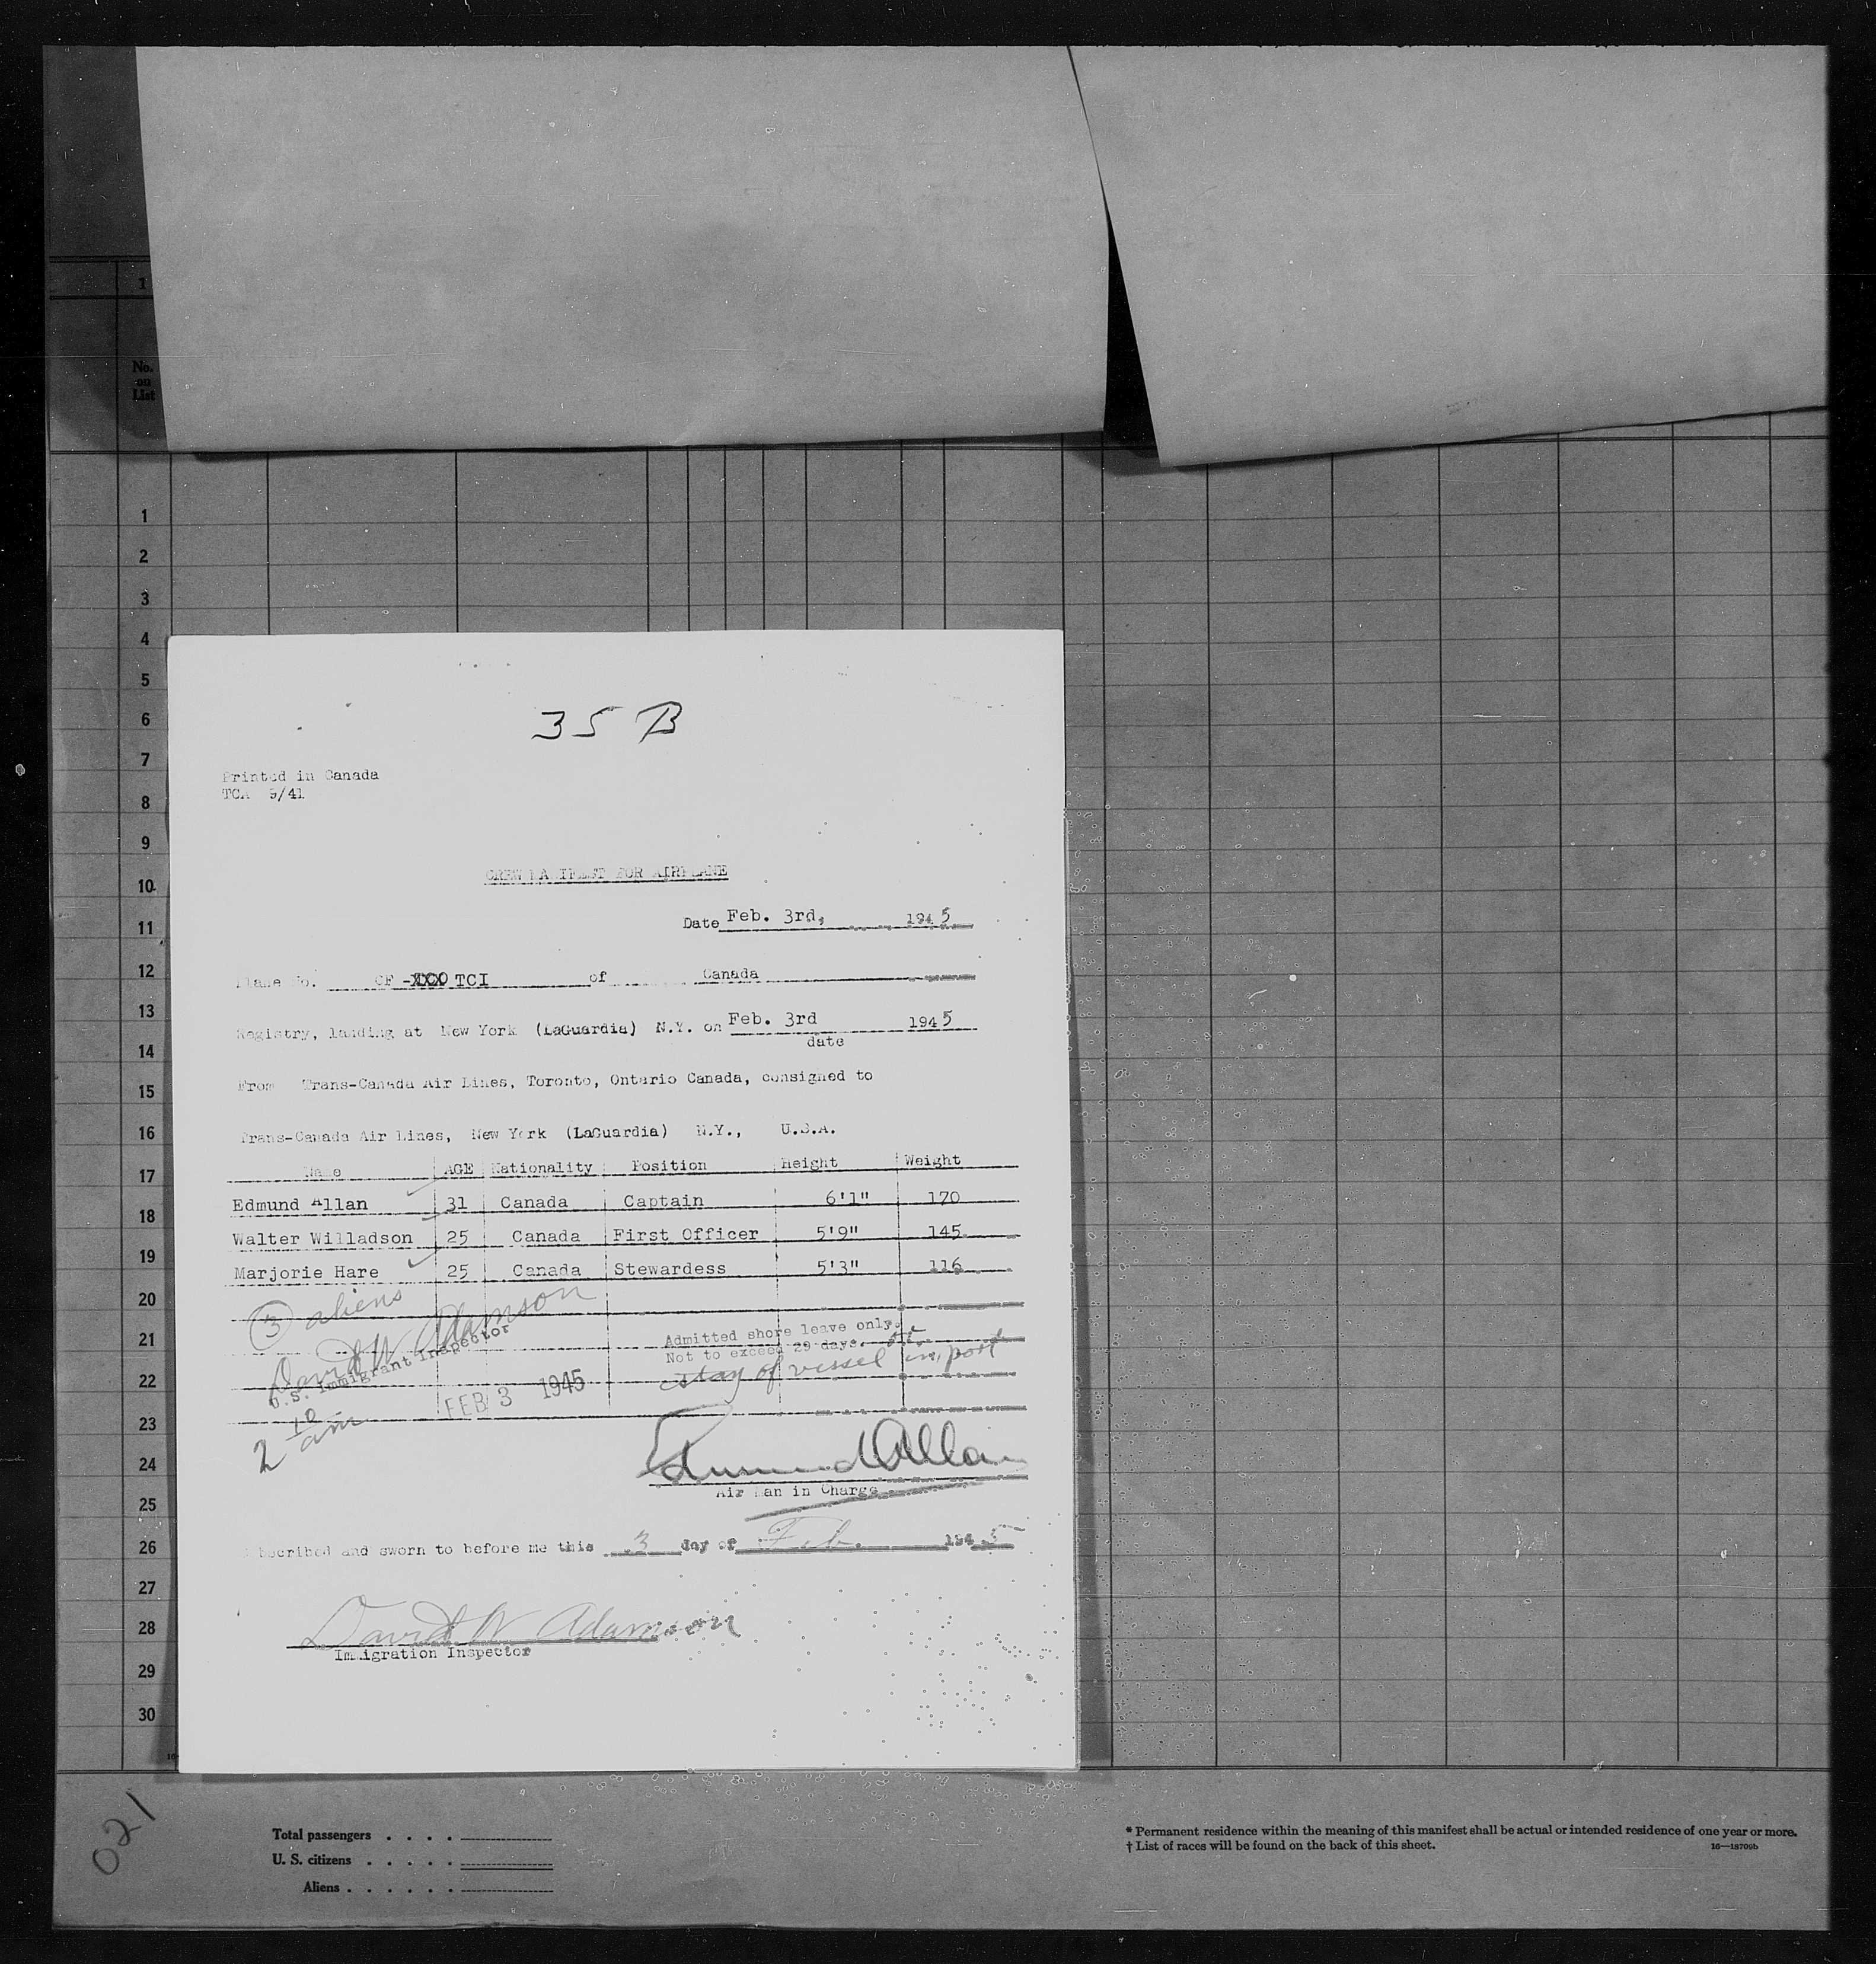 1
No.
on
List
1
2
3
4
5
6
7
8
9
10
11
12
13
14
15
16
17
18
19
20
21
22
23
24
25
26
27
28
29
30
35 B
Printed in Canada
TCA 9/41
CREW MANIFEST FOR AIRPLANE
Date Feb. 3rd, 1945
Plane No. CF - TCI of Canada
Registry, landing at New York (LaGuardia) N.Y. on Feb. 3rd 1945
date
From Trans-Canada Air Lines, Toronto, Ontario Canada, consigned to
Trans-Canada Air Lines, New York (LaGuardia) N.Y., U.S.A.
Name AGE Nationality Position Height Weight
Edmund Allan 31 Canada Captain 6'1" 170
Walter Willadson 25 Canada First Officer 5'9" 145
Marjorie Hare 25 Canada Stewardess 5'3" 116
3 aliens
David W Adamson
U.S. Immigrant Inspector
Admitted shore leave only.
Not to exceed 29 days.
stay of vessel in port
FEB 3 1945
2 10 am
Edmund Allan
Air Man in Charge
Subscribed and sworn to before me this 3 day of Feb. 1945
David W Adamson
Immigration Inspector
021
Total passengers . . . .
U. S. citizens . . . . .
Aliens . . . . . .
* Permanent residence within the meaning of this manifest shall be actual or intended residence of one year or more.
† List of races will be found on the back of this sheet.
16—18709b